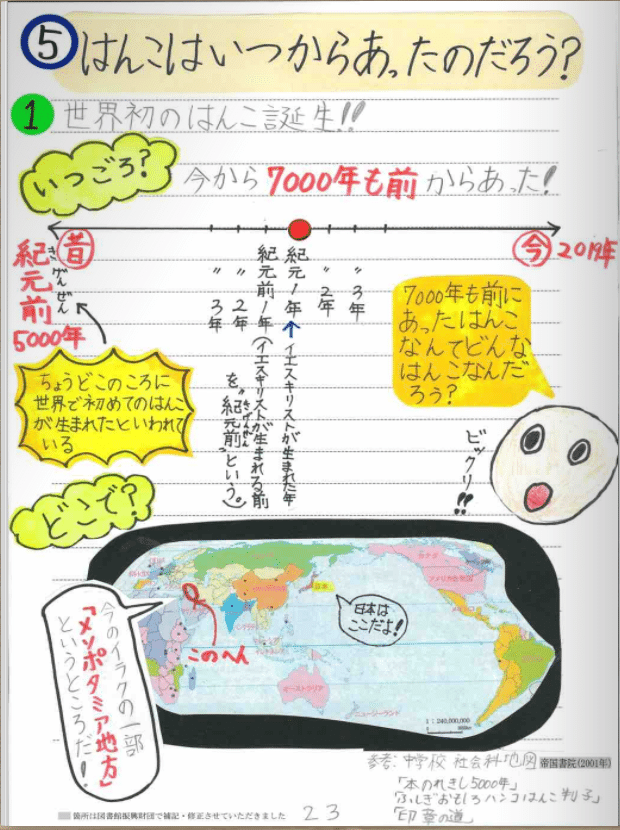 ⑤ はんこはいつからあったのだろう?
1 世界初のはんこ誕生!!
いつごろ?
今から7000年も前からあった!
昔
今 2019年
紀元前
きげんぜん
5000年
〃3年
〃2年
紀元前1年(イエスキリストが生まれる前
を"紀元前"という。)
きげんぜん
紀元1年
↑イエスキリストが生まれた年
〃2年
〃3年
7000年も前に
あったはんこ
なんてどんな
はんこなんだ
ろう?
ちょうどこのころに
世界で初めてのはんこ
が生まれたといわれて
いる
ビックリ!!
どこで?
カナダ
アメリカ合衆国
日本
日本は
ここだよ!
このへん
オーストラリア
ニュージーランド
1:240,000,000
今のイラクの一部
「メソポタミア地方」
というところだ!
参考:中学校 社会科地図 帝国書院(2001年)
「本のれきし5000年」
「ふしぎおもしろハンコはんこ判子」
「印章の道」
箇所は図書館振興財団で補記・修正させていただきました
23